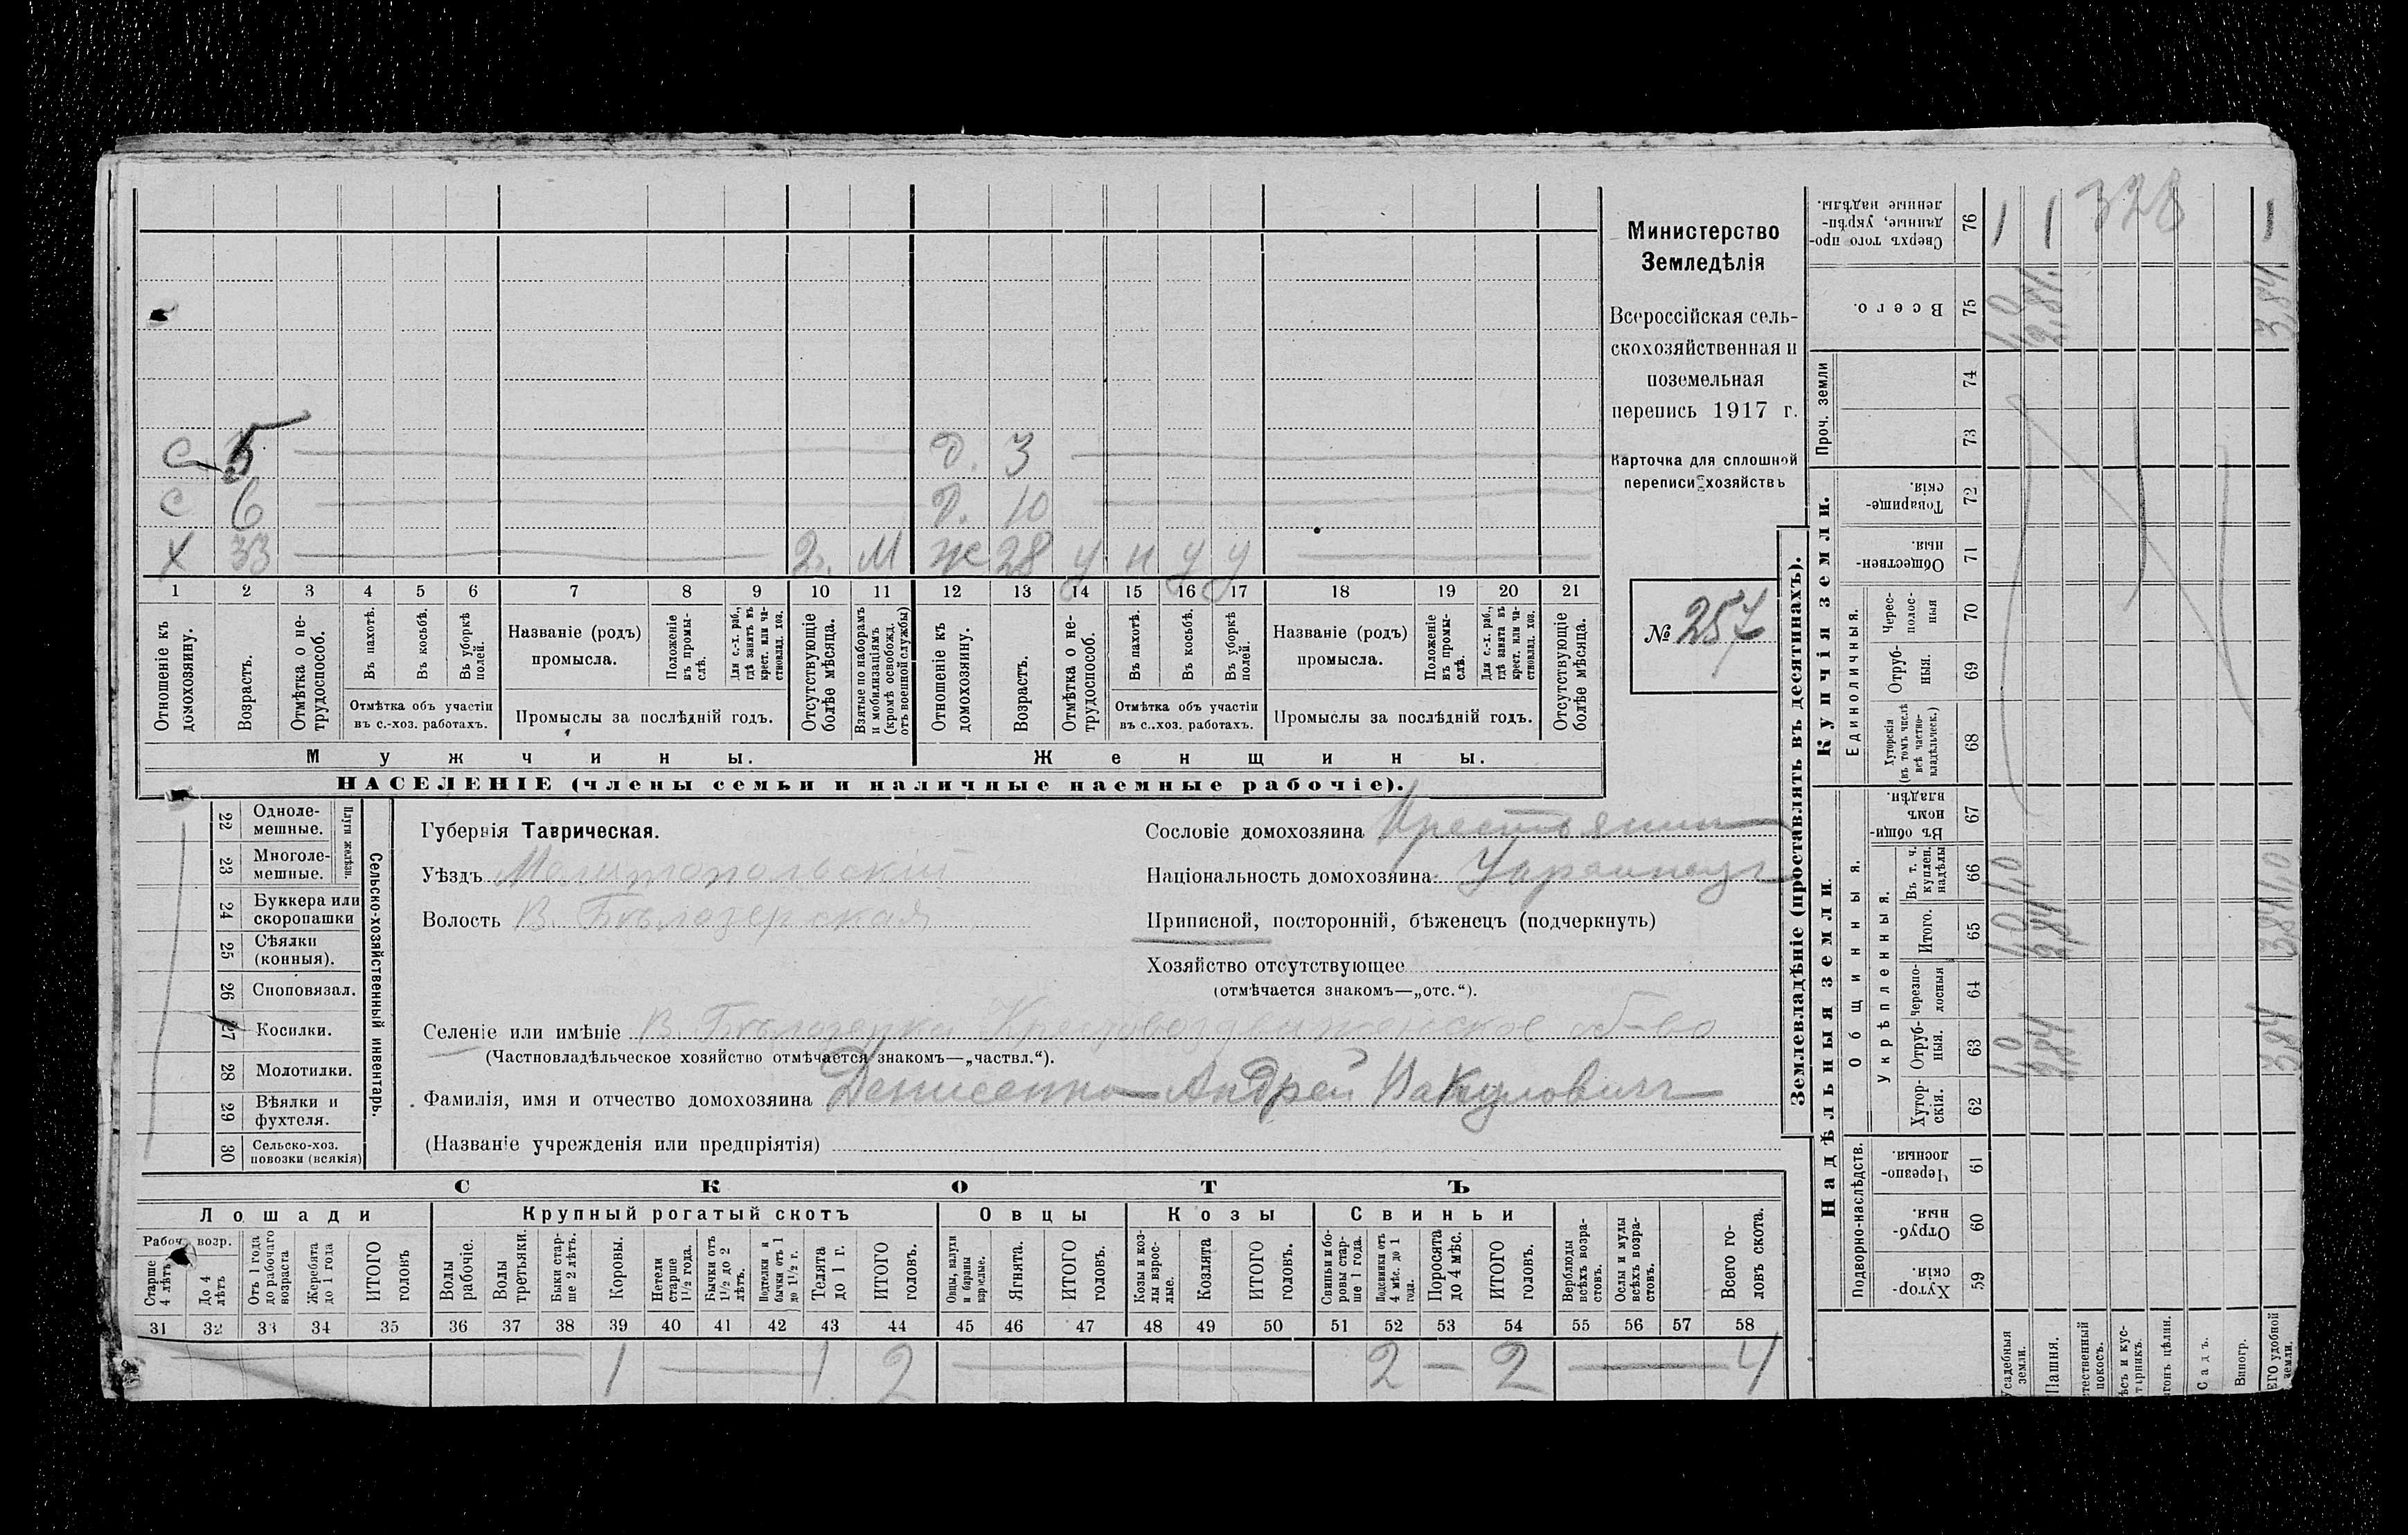 Министерство
Земледѣлія
Всероссійская сель-
скохозяйственная и
поземельная
перепись 1917 г.
Карточка для сплошной
переписи хозяйствъ
№ 257
С 5 Д. 3
С 6 Д. 10
Х 33 2г. М Ж 28 у н у у
1 2 3 4 5 6 7 8 9 10 11 12 13 14 15 16 17 18 19 20 21
Отношеніе къ домохозяину.
Возрастъ.
Отмѣтка о не-трудоспособ.
Въ пахотѣ.
Въ косьбѣ.
Въ уборкѣ полей.
Отмѣтка объ участіи
въ с.-хоз. работахъ.
Названіе (родъ)
промысла.
Положеніе въ промы-слѣ.
Для с.-х. раб., гдѣ занятъ въ крест. или ча-стновлад. хоз.
Промыслы за послѣдній годъ.
Отсутствующіе болѣе мѣсяца.
Взятые по наборамъ и мобилизаціямъ (кромѣ освобожд. отъ военной службы)
Отношеніе къ домохозяину.
Возрастъ.
Отмѣтка о не-трудоспособ.
Въ пахотѣ.
Въ косьбѣ.
Въ уборкѣ полей.
Отмѣтка объ участіи
въ с.-хоз. работахъ.
Названіе (родъ)
промысла.
Положеніе въ промы-слѣ.
Для с.-х. раб., гдѣ занята въ крест. или ча-стновлад. хоз.
Промыслы за послѣдній годъ.
Отсутствующіе болѣе мѣсяца.
Мужчины. Женщины.
НАСЕЛЕНІЕ (члены семьи и наличные наемные рабочіе).
22 Одноле-мешные.
23 Многоле-мешные.
Плуги желѣзн.
24 Буккера или скоропашки
25 Сѣялки (конныя).
26 Сноповязал.
27 Косилки.
28 Молотилки.
29 Вѣялки и фухтеля.
30 Сельско-хоз. повозки (всякія)
Сельско-хозяйственный инвентарь.
Губернія Таврическая.
Уѣздъ Мелитопольскій
Волость В. Бѣлозерская
Сословіе домохозяина Крестьянин
Національность домохозяина Украинец
Приписной, посторонній, бѣженецъ (подчеркнуть)
Хозяйство отсутствующее
(отмѣчается знакомъ—„отс.“).
Селеніе или имѣніе В. Бѣлозерка Крестовоздвиженское об-во
(Частновладѣльческое хозяйство отмѣчается знакомъ—„частвл.“).
Фамилія, имя и отчество домохозяина Денисенко Андрей Вакулович
(Названіе учрежденія или предпріятія)
СКОТЪ
Лошади Крупный рогатый скотъ Овцы Козы Свиньи
Рабоч. возр.
Старше 4 лѣтъ
До 4 лѣтъ
Отъ 1 года до рабочаго возраста
Жеребята до 1 года
ИТОГО головъ
Волы рабочіе.
Волы третьяки.
Быки стар-ше 2 лѣтъ.
Коровы.
Нетели старше 1½ года.
Бычки отъ 1½ до 2 лѣтъ.
Подтелки и бычки отъ 1 до 1½ г.
Телята до 1 г.
ИТОГО головъ.
Овцы, валухи и бараны взрослые.
Ягнята.
ИТОГО головъ.
Козы и коз-лы взрос-лые.
Козлята
ИТОГО головъ.
Свиньи и бо-ровы стар-ше 1 года.
Подсвинки отъ 4 мѣс. до 1 года.
Поросята до 4 мѣс.
ИТОГО головъ.
Верблюды всѣхъ возра-стовъ.
Ослы и мулы всѣхъ возра-стовъ.
Всего го-ловъ скота.
31 32 33 34 35 36 37 38 39 40 41 42 43 44 45 46 47 48 49 50 51 52 53 54 55 56 57 58
1 — 1 2 — 2 — 2 — 4
Землевладѣніе (проставлять въ десятинахъ).
Надѣльныя земли. Купчія земли. Проч. земли
Подворно-наслѣдств.
Общинныя.
Укрѣпленныя.
Единоличныя.
59 Хутор-скія.
60 Отруб-ныя.
61 Черезпо-лосныя.
62 Хутор-скія.
63 Отруб-ныя.
64 Черезпо-лосныя
65 Итого.
66 Въ т. ч. куплен. надѣлы
67 Въ общи-номъ владѣн.
68 Хуторскія (въ томъ числѣ всѣ частно-владѣльческ.)
69 Отруб-ныя.
70 Черес-полос-ныя
71 Обществен-ныя.
72 Товарище-скія.
73
74
75 Всего.
76 Сверхъ того про-данные, укрѣп-ленные надѣлы.
328
Усадебныя земли.
1,0 1,0 1,0
Пашня.
2,84 2,84 2,84
Садъ.
Виногр.
3,84 3,84 1,0 3,84